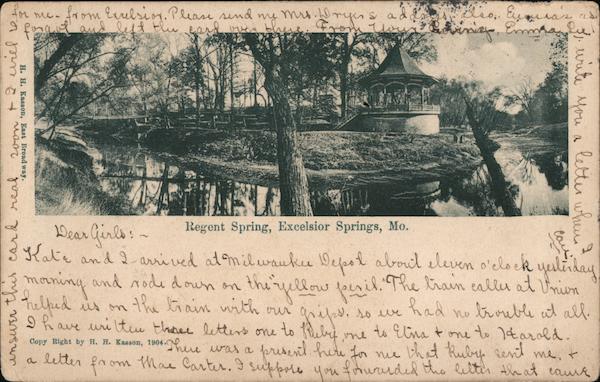 Dear Girls:-
Kate and I arrived at Milwaukee Depot about eleven o'clock yesterday
morning and rode down on the "yellow peril." The train caller at Union
helped us on the train with our grips. so we had no trouble at all.
I have written three letters one to Ruby one to Etna & one to Harold.
There was a present here for me that Ruby sent me, &
a letter from Mae Carter. I suppose you forwarded the letter that came
for me - from Excelsior. Please send me Mrs. also.
forgot and left the card over there. From
I will write you a letter when I
can.
answer this card real soon & I will
Regent Spring, Excelsior Springs, Mo.
H. H. Kasson, East Broadway.
Copy Right by H. H. Kasson, 1904.